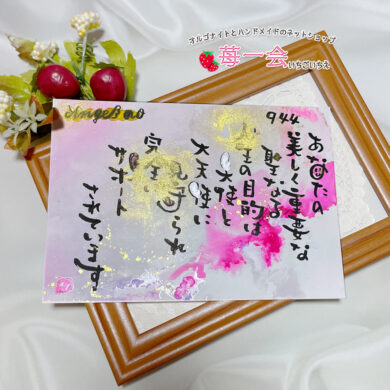 オルゴナイトとハンドメイドのネットショップ
苺一会
いちごいちえ
944
あなたの
美しく重要な
聖なる
の目的は
天使と
大天使に
見守られ
完全に
サポート
されています